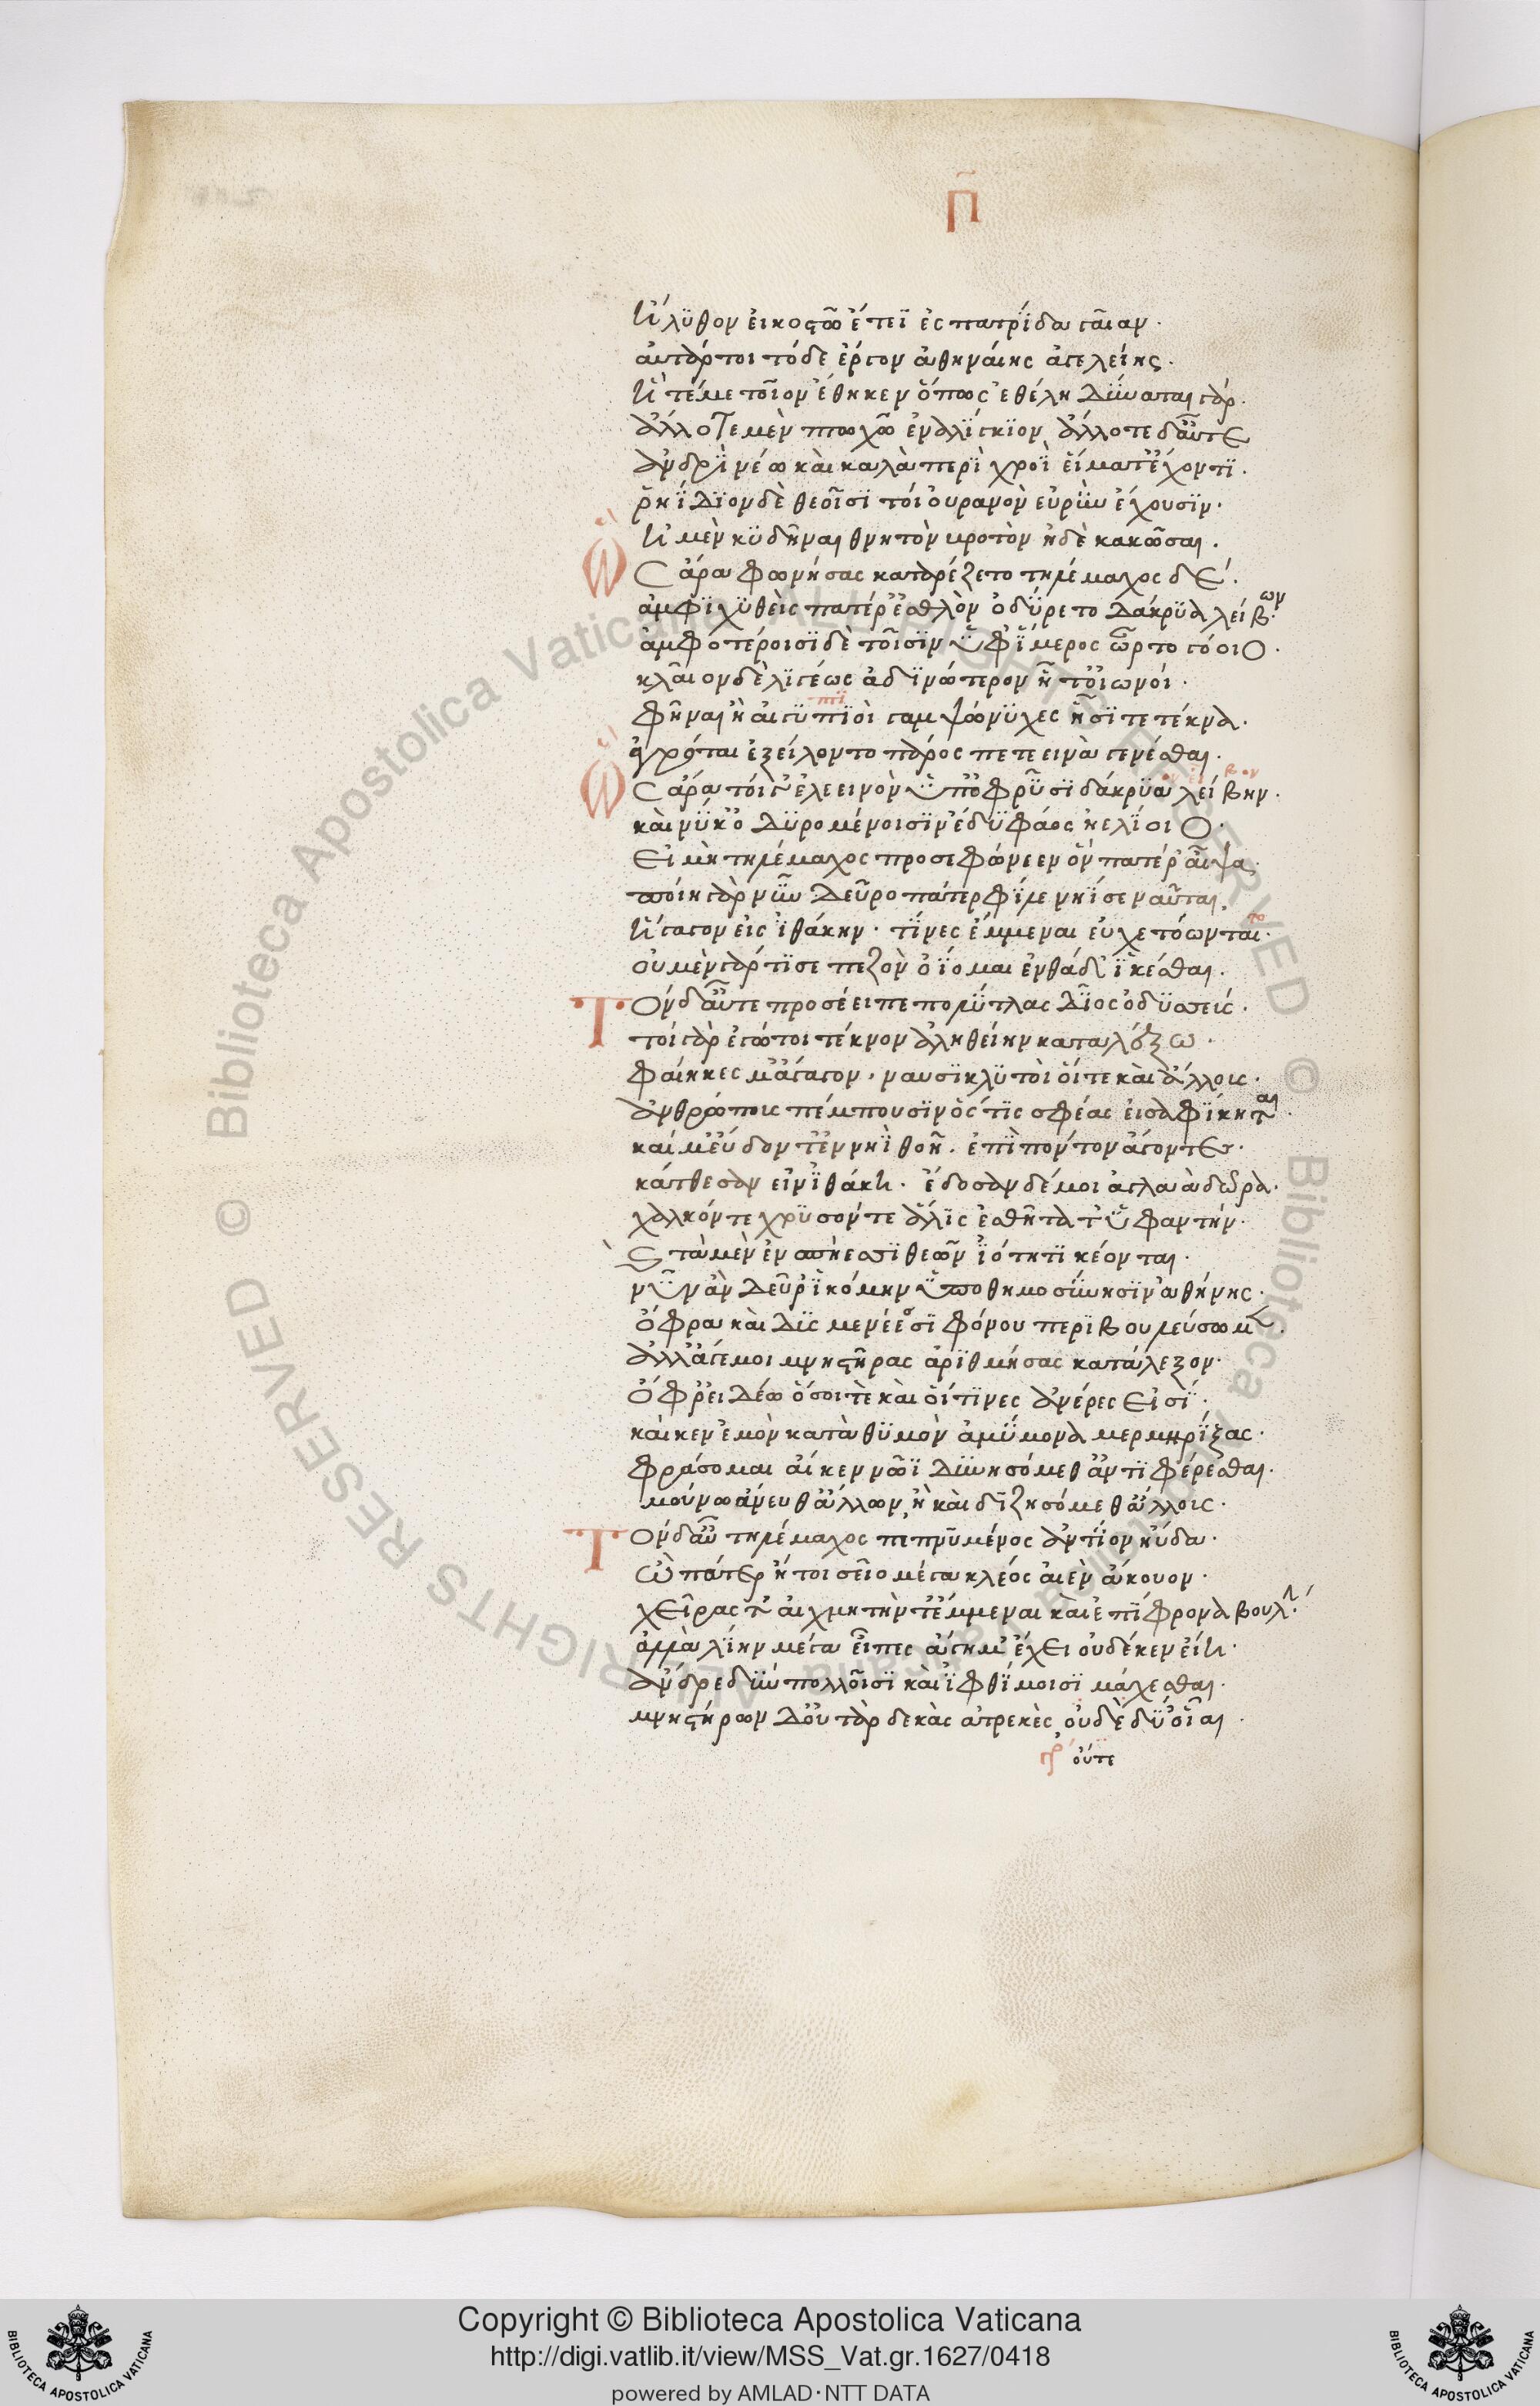 π̄
ἤλϋθον ἐικοστῶ ἔτεϊ ἐς πατρΐδα γαῖαν·
αὐτάρ τοι τόδε ἔργον ἀθηναίης ἀγελείης·
ἥ τέ με τοῖον ἔθηκεν ὅπως ἐθέλη δΰναται γάρ·
ἄλλοτε μὲν πτωχῶ ἐναλΐγκϊον ἄλλοτε δ᾽ αὖτε
ἀνδρῒ νέω καὶ καλὰ περὶ χροῒ εἵματ᾽ ἔχοντϊ·
ῥηΐδϊον δὲ θεοῖσϊ τοὶ οὐρανὸν εὐρΰν ἔχουσϊν·
ἠ μὲν κϋδῆναι θνητὸν βροτὸν ἠδὲ κακῶσαι·
Ὣς ἄρα φωνήσας κατ᾽ ἄρ ἕζετο τηλέμαχος δέ·
ἀμφϊχϋθεὶς πατέρ᾽ ἐσθλὸν ὀδΰρετο δάκρϋα λείβων·
ἀμφοτέροισϊ δὲ τοῖσϊν ὑφ᾽ ἵμερος ὦρτο γόοιο·
κλαῖον δὲ λϊγέως ἀδϊνώτερον ἤ τ᾽ οἰωνοί·
φῆναι ἢ αἰγϋπϊοὶ γαμψώνϋχες ἧσϊ τε τέκνα·
πϊ
ἀγρόται ἐξείλοντο πάρος πετεεινὰ γενέσθαι·
Ὣς ἄρα τοί γ᾽ ἐλεεινὸν ὑπ᾽ ὀφρΰσϊ δάκρϋα λείβην·
βον
καὶ νΰ κ᾽ ὀδϋρομένοισϊν ἔδϋ φάος ἠελΐοιο·
Εἰ μὴ τηλέμαχος προσεφώνεεν ὃν πατέρ᾽ αἶψα·
ποίη γὰρ νῦν δεῦρο πάτερ φΐλε νηΐ σε ναῦται·
ἤγαγον εἰς ἰθάκην· τΐνες ἔμμεναι εὐχετόωνται·
το
οὐ μὲν γάρ τϊ σε πεζὸν ὀΐομαι ἐνθάδ᾽ ἱκέσθαι·
Τὸν δ᾽ αὖτε προσέειπε πολΰτλας δῖος ὀδϋσσεύς·
τοὶ γὰρ ἐγώ τοι τέκνον ἀληθείην καταλέξω·
φαίηκες μ᾽ ἄγαγον· ναυσϊκλϋτοὶ οἵτε καὶ ἄλλους·
ἀνθρώπους πέμπουσϊν ὅς τϊς σφέας εἰσαφΐκηται·
καί μ᾽ εὕδοντ᾽ ἐν νηῒ θοῆ· ἐπῒ πόντον ἄγοντες·
κάτθεσαν εἰν ἰθάκη· ἔδοσαν δέ μοι ἀγλαὰ δῶρα·
χαλκόν τε χρϋσόν τε ἅλϊς ἐσθῆτά θ᾽ ὑφαντήν·
ϛ τὰ μὲν ἐν σπήεσσϊ θεῶν ἰότητϊ κέονται·
νῦν ἂν δεῦρ᾽ ἱκόμην ὑποθημοσΰνησϊν ἀθήνης·
ὄφρα καὶ δϋςμενέεσσϊ φόνου περϊβουλεύσωμεν·
ἀλλ᾽ ἄγε μοι μνηστῆρας ἀρϊθμήσας κατάλεξον·
ὄφρ᾽ εἰδέω ὅσοι τὲ καὶ οἵτϊνες ἀνέρες εἰσΐ·
καί κεν ἐμὸν κατὰ θϋμὸν ἀμΰμονα μερμηρΐξας·
φράσομαι αἴ κεν νῶϊ δϋνησόμεθ᾽ ἀντϊφέρεσθαι·
μούνω ἄνευθ᾽ ἄλλων, ἢ καὶ δϊζησόμεθ᾽ ἄλλους·
Τὸν δ᾽ αὖ τηλέμαχος πεπνῡμένος ἀντΐον ηὔδα·
ὦ πάτερ ἤτοι σεῖο μέγα κλέος αἰὲν ἄκουον·
χεῖρας τ᾽ αἰχμητὴν τ᾽ ἔμμεναι καὶ ἐπΐφρονα βουλήν·
ἀλλὰ λΐην μέγα εἶπες ἄγη μ᾽ ἔχει οὐδέ κεν εἴη·
ἄνδρε δΰω πολλοῖσϊ καὶ ἰφθΐμοισϊ μάχεσθαι·
μνηστήρων δ᾽ οὔτ᾽ ἂρ δεκὰς ἀτρεκὲς, οὐδὲ δΰ᾽ οἶαι·
γρ οὔτε
Copyright © Biblioteca Apostolica Vaticana
http://digi.vatlib.it/view/MSS_Vat.gr.1627/0418
powered by AMLAD·NTT DATA